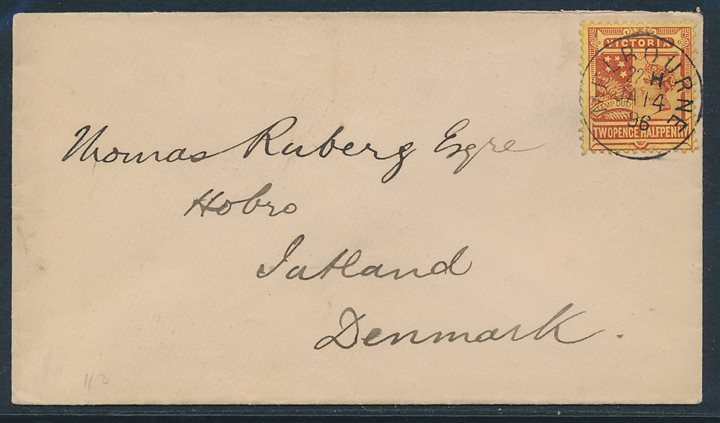 VICTORIA
MELBOURNE
22 H
JA 14
96
TWOPENCE HALFPENNY
Thomas Ruberg Esqre
Hobro
Jutland
Denmark.
113